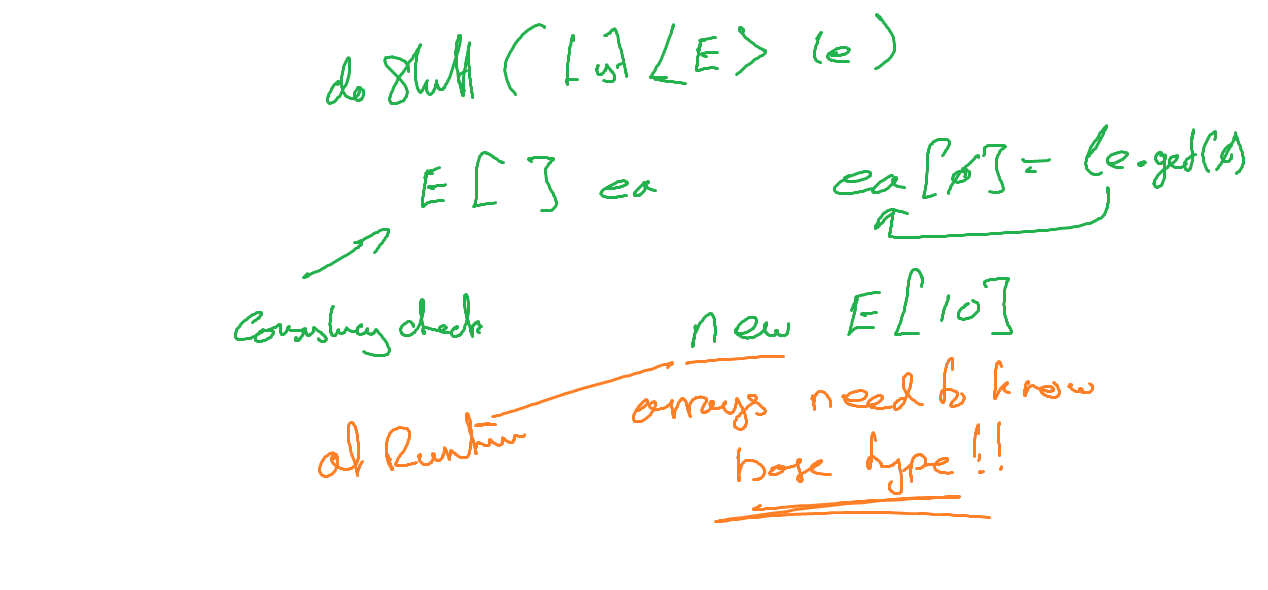 do Stuff ( List <E> le )
E [ ] ea ea [0] = le.get(0)
Consistency check new E [10]
at Runtime arrays need to know
base type !!